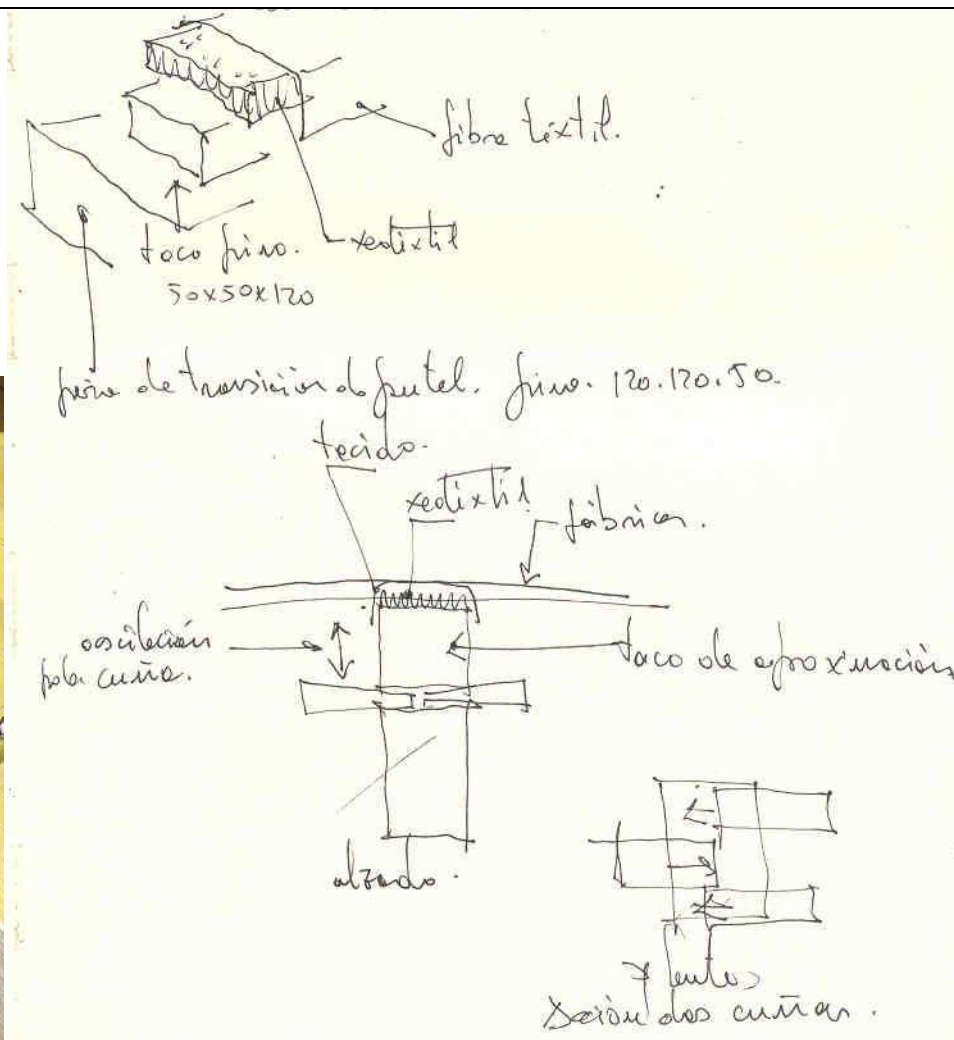 fibra téxtil.
xeotextil
taco pino.
50x50x120
peza de transición do puntal. pino. 120.120.50.
tecido.
xeotextil
fábrica.
oscilación
pola cuña.
taco de aproximación
alzado.
Sección das cuñas.